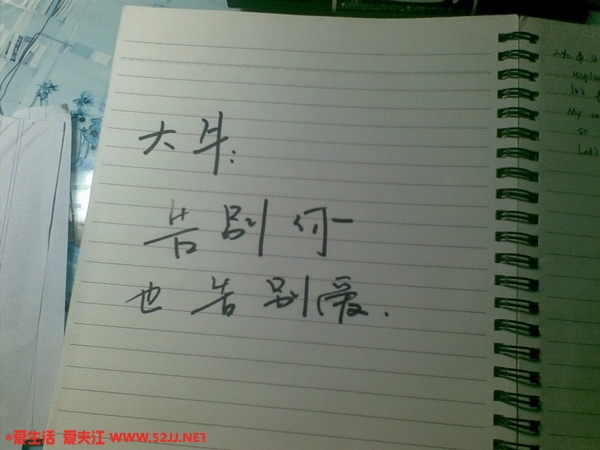 大牛：
告别你
也告别爱.
It's
My
so
Let's
*爱生活 爱夹江 WWW.52JJ.NET